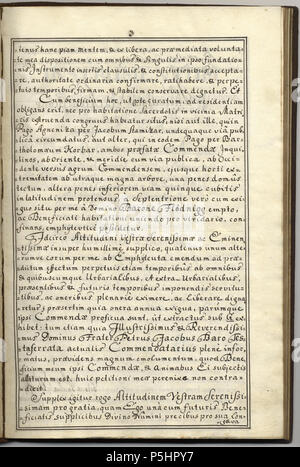 3
tenus hanc piam mentem, & ex libera, ac præmeditata volunta-
te mea dispositionem cum omnibus & singulis in ipso fundatio-
nis Instrumento insertis clausulis, & constitutionibus accepta-
re, authoritate ordinaria confirmare, ratihabere, & perpe-
tuis temporibus firmam, & stabilem conservare dignetur. Et
Cum beneficium hoc, ut pote curatum, ad residentiam
obligans erit, nec pro habitatione Sacerdotis in vicina Ma-
cis extruenda congruus habeatur situs, nisi aut ille, quin
Pago per Jacobum undequaque via pub-
lica circumdatus, aut alter, qui in eodem Pago per Bar-
tholomæum Kerbar, ambos præfatæ Commendæ Inqui-
linos, ab Oriente, & meridie cum via publica, ab Occi-
dente versus agrum Commendæ, ejusque horti ex-
tremitatem ab utraque magna arbore, una penes domus
tectum, altera penes inferiorem viam quinque cubitis
in latitudinem protensus, a Septentrione vero cum ex-
quo situ per me a Domino Barone empto,
ac Beneficiati habitationi uniendo pro viridario, con-
finans, emphyteutice possidetur.
Addirco Altitudini Vestræ Serenissimæ ac Eminen-
tissimæ insuper humillime supplico, quatenus unum alte-
rumve eorum per me ab Emphyteuta emendum ad præ-
dictum effectum perpetuis etiam temporibus ab omnibus
& quibuscunque Urbarialibus, et extra Urbarialibus,
præsentibus & futuris temporibus imponendis servitu-
tibus, ac oneribus plenarie eximere, ac liberare digne-
retur, præsertim quia onera annua exigua, parumque
ipsi Commendæ proficua sunt, ut extractus sub
hibet: tum etiam quia Illustrissimus & Reverendissi-
mus Dominus Frater Petrus Jacobus Baro Tes-
taferrata actualis Commendatarius plene infor-
matus, prævidens magnum emolumentum, quod Bene-
ficium meum ipsi Commendæ, & Animabus Ei subjectis
allaturum est, huic petitioni meæ perenni non contra-
dicit.
Supplex igitur rogo Altitudinem Vestram Serenissi-
mam pro gratia, quam Ego una cum futuris Bene-
ficiatis supplicibus Divino Numini precibus pro sua Con-
serva